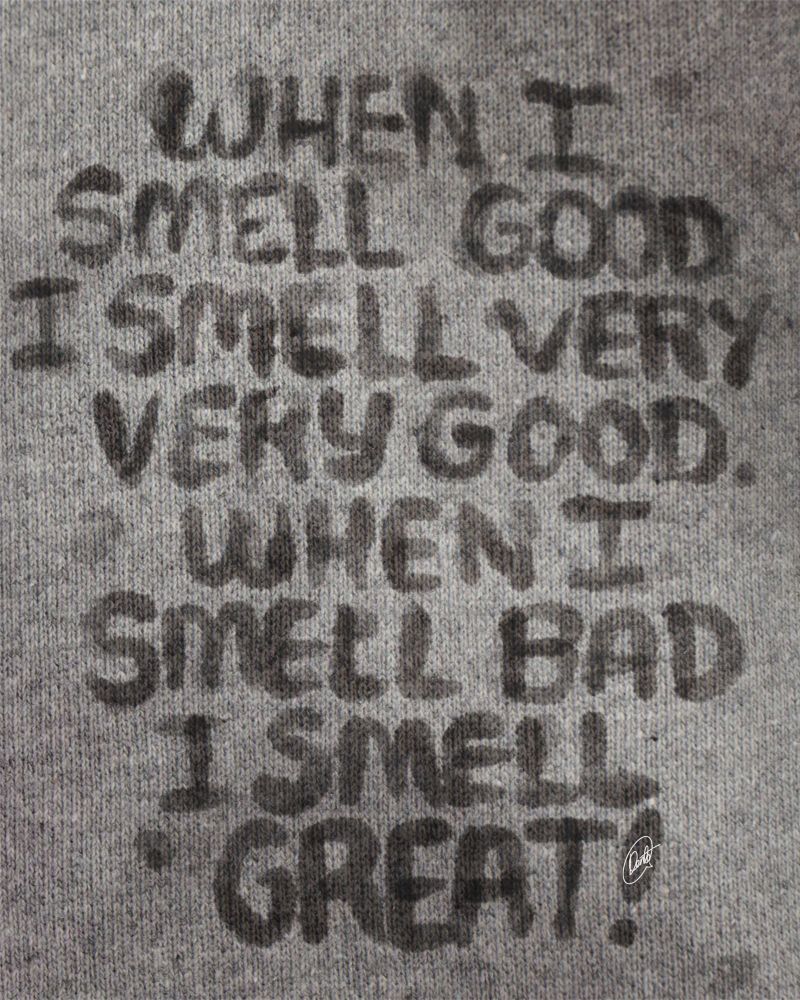 WHEN I
SMELL GOOD
I SMELL VERY
VERY GOOD.
WHEN I
SMELL BAD
I SMELL
GREAT!